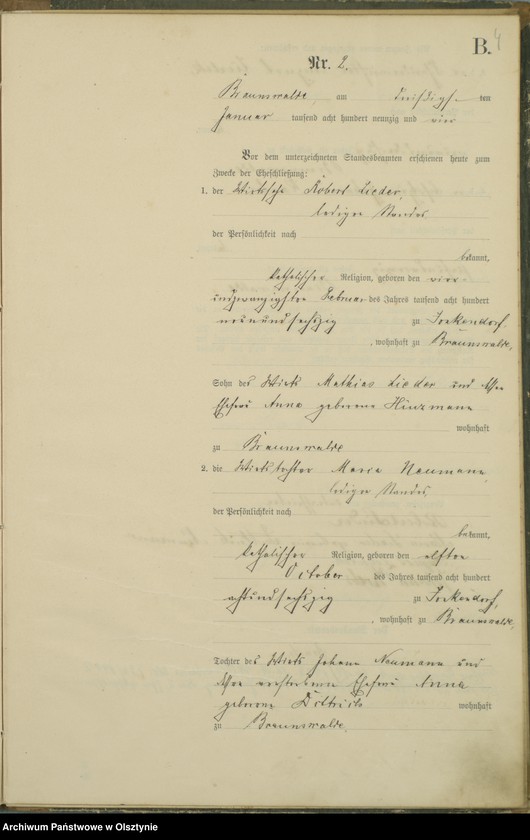 B. 4
Nr. 2.
Braunswalde, am dreißigsten
Januar tausend acht hundert neunzig und vier
Vor dem unterzeichneten Standesbeamten erschienen heute zum
Zwecke der Eheschließung:
1. der Wirthssohn Robert Lieder,
lediger Standes
der Persönlichkeit nach
bekannt,
katholischer Religion, geboren den vier-
undzwanzigsten Februar des Jahres tausend acht hundert
neunundsechszig zu Jonkendorf,
, wohnhaft zu Braunswalde,
Sohn des Wirths Mathias Lieder und
Ehefrau Anna geborene Hinzmann
wohnhaft
zu Braunswalde
2. die Wirthstochter Maria Neumann,
lediger Standes,
der Persönlichkeit nach
bekannt,
katholischer Religion, geboren den elften
October des Jahres tausend acht hundert
achtundsechszig zu Jonkendorf,
, wohnhaft zu Braunswalde,
Tochter des Wirths Johann Neumann und
verstorbenen Ehefrau Anna
geborene Dittrich wohnhaft
zu Braunswalde.
Archiwum Państwowe w Olsztynie